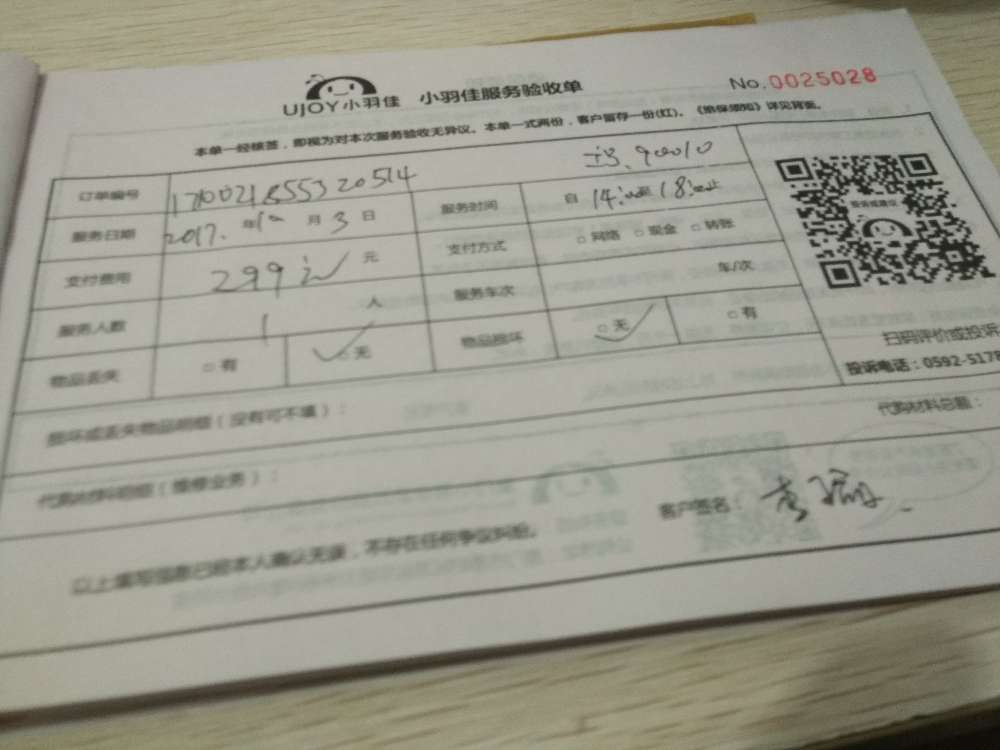 UJOY小羽佳 小羽佳服务验收单 No.0025028
本单一经核签，即视为对本次服务验收无异议。本单一式两份，客户留存一份(红)。《担保须知》详见背面。
订单编号
服务日期 2017.年10月3日 服务时间 自14:00至18:00止
支付费用 299元 支付方式 □网络 □现金 □转账
服务人数 1人 服务车次 车/次
物品丢失 □有 □无 物品损坏 □无 □有
扫码评价或投诉
投诉电话：0592-5178
损坏或丢失物品明细（没有可不填）：
代购材料明细（维修业务）： 代购材料总额：
以上填写信息已经本人确认无误，不存在任何争议纠纷。 客户签名：